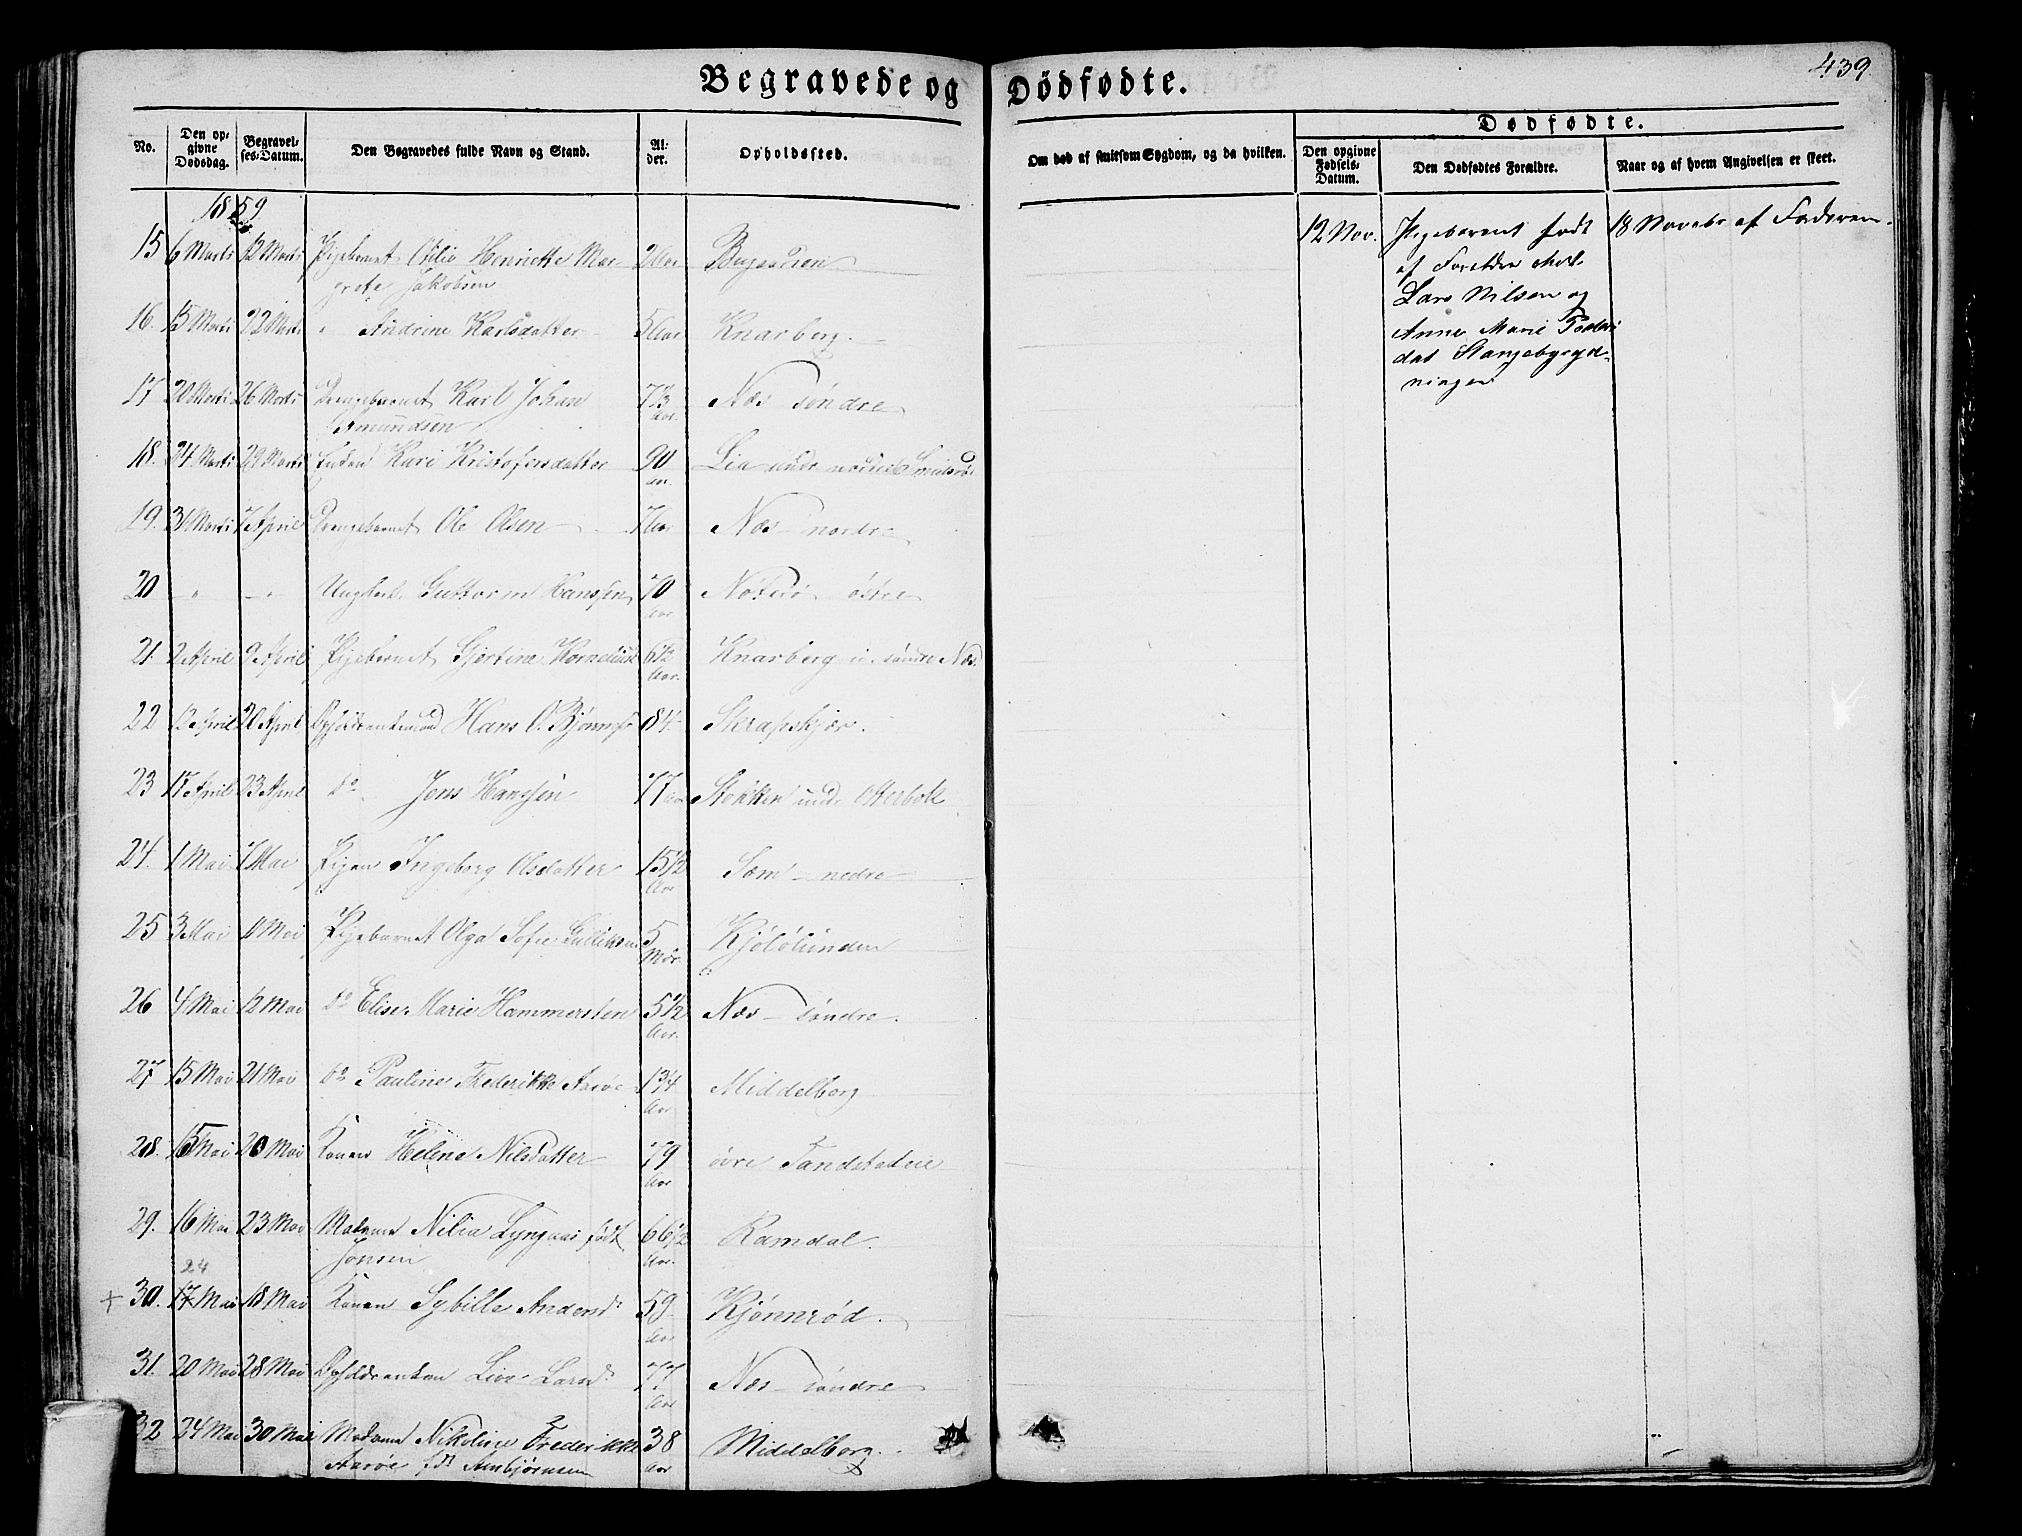 Begravede og Dödfödte.
439.
No.
Den opgivne Dødsdag.
Begravelses-Datum.
Den Begravedes fulde Navn og Stand.
Alder.
Opholdssted.
Om død af smitsom Sygdom, og da hvilken.
Dødfødte.
Den opgivne Fødsels-Datum.
Den Dødfødtes Forældre.
Naar og af hvem Angivelsen er skeet.
1859
15 6 Marts 12 Marts Pigebarnet Otilie Henriette Mar-
grete Jakobsen 2 Aar
16. 15 Marts 22 Marts " Andrine Karlsdatter 5 Aar Knarberg.
17 20 Marts 26 Marts Drengebarnet Karl Johan
Amundsen 7 3/4 Aar. Næs søndre
18. 24 Marts 29 Marts Enken Kari Kristofersdatter 90 Aar. Lia under nordre Smidsrø
19. 31 Marts 7 April Drengebarnet Ole Olsen 7 Aar Næs nordre
20 " " Ungkarl Guttorm Hanssen 70 Aar Nøterø østre
21. 2 April 9 April Pigebarnet Gjertine Kornelius 6 1/2 Aar. Knarberg u. søndre Næs.
22 12 April 20 April Opholdrentemand Hans O. Bjørnss 84 Skrapskjær.
23 17 April 23 April do Jens Hanssen 77 Aar Stokken under Otterbek
24. 1 Mai 7 Mai Pigen Ingeborg Olsdatter 15 1/2 Aar Sæm nedre
25 3 Mai 11 Mai Pigebarnet Olga Sofie Gulliksen 5 Mdr. Kjølölunden
26 4 Mai 12 Mai do Elise Marie Hammersten 5 1/2 Aar. Næs søndre.
27 15 Mai 21 Mai do Pauline Frederikke Aarøe 1 3/4 Aar Middelborg
28. 15 Mai 20 Mai Konen Helene Nilsdatter 79 Aar øvre
29. 16 Mai 23 Mai Madame Nilia Lyngaas født
Jonsen 66 1/2 Aar. Ramdal.
24
+ 30. 17 Mai 18 Mai Konen Sybille Andersd: 59 Aar Kjønnerød.
31. 20 Mai 28 Mai Live Larsd: 77 Aar Næs søndre
32 24 Mai 30 Mai Madame Nikoline Frederikke
Aarøe fdt Ambjørnsen 38 Aar Middelborg.
12 Nov. Pigebarnet født
af Foreldre
Lars Nilsen og
Anne Marie Peders
dat Stangebygyd-
ningen
18 Novebr af Faderen.